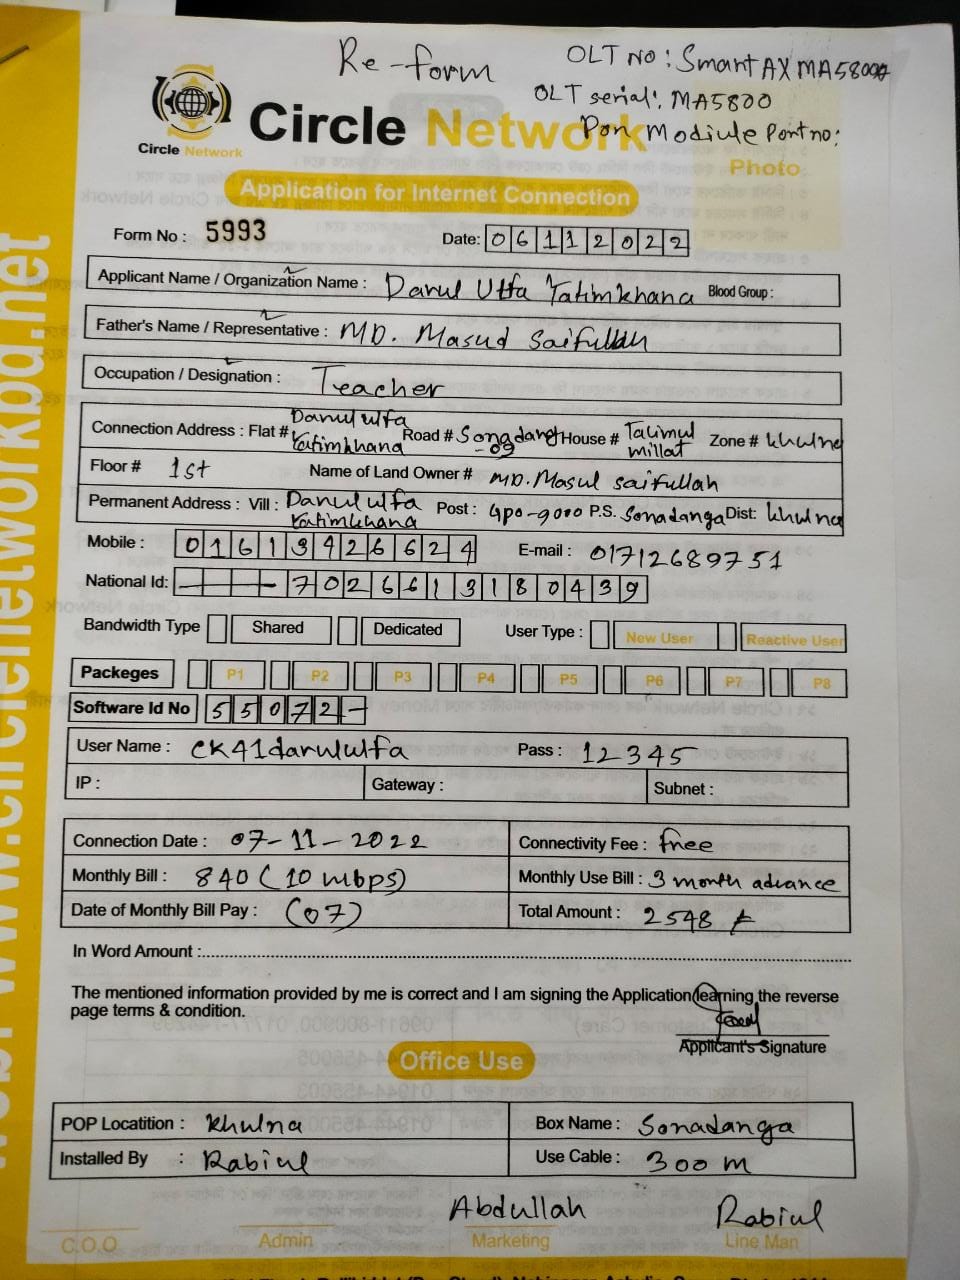 Re-form
OLT NO: SmartAX MA5800
OLT serial: MA5800
Pon Module Port no:
Circle Network
Circle Network
Photo
Application for Internet Connection
Form No : 5993
Date: 06112022
Applicant Name / Organization Name : Darul Ulfa Yatimkhana Blood Group :
Father's Name / Representative : MD. Masud Saifullah
Occupation / Designation : Teacher
Connection Address : Flat # Darul ulfa Yatimkhana Road # Sonadang -09 House # Talimul millat Zone # khulna
Floor # 1st Name of Land Owner # MD. Masul saifullah
Permanent Address : Vill : Darul ulfa Yatimkhana Post : Gpo-9000 P.S. Sonadanga Dist: khulna
Mobile : 01613426624 E-mail : 01712689751
National Id: - - - 7026613180439
Bandwidth Type Shared Dedicated User Type : New User Reactive User
Packeges P1 P2 P3 P4 P5 P6 P7 P8
Software Id No 55072-
User Name : CK41darululfa Pass : 12345
IP : Gateway : Subnet :
Connection Date : 07-11-2022 Connectivity Fee : free
Monthly Bill : 840 (10 mbps) Monthly Use Bill : 3 month advance
Date of Monthly Bill Pay : (07) Total Amount : 2548
In Word Amount :
The mentioned information provided by me is correct and I am signing the Application learning the reverse
page terms & condition.
Applicant's Signature
Office Use
POP Locatition : Khulna Box Name : Sonadanga
Installed By : Rabiul Use Cable : 300 m
Abdullah Rabiul
C.O.O Admin Marketing Line Man